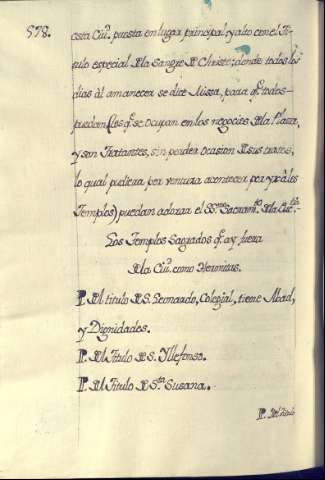 578.
esta Ciu.^d puesta en lugar principal y alto con el Ti-
tulo especial de la Sangre de Christo; donde todos los
dias al amanecer se dice Missa, para q.^e todos
puedan (los q.^e se ocupan en los negocios de la Plaza,
y son Tratantes, sin perder ocasion de sus tratos,
lo qual pudiera por ventura acontecer por yr a los
Templos) puedan adorar el SS.^mo Sacram.^to de la
Los Templos Sagrados q.^e ay fuera
de la Ciu.^d como Hermitas.
P. del titulo de S. Leonardo, Colegial, tiene Abad,
y Dignidades.
P. del Titulo de S. Yllefonso.
P. del Titulo de S.^ta Susana.
P. del titulo